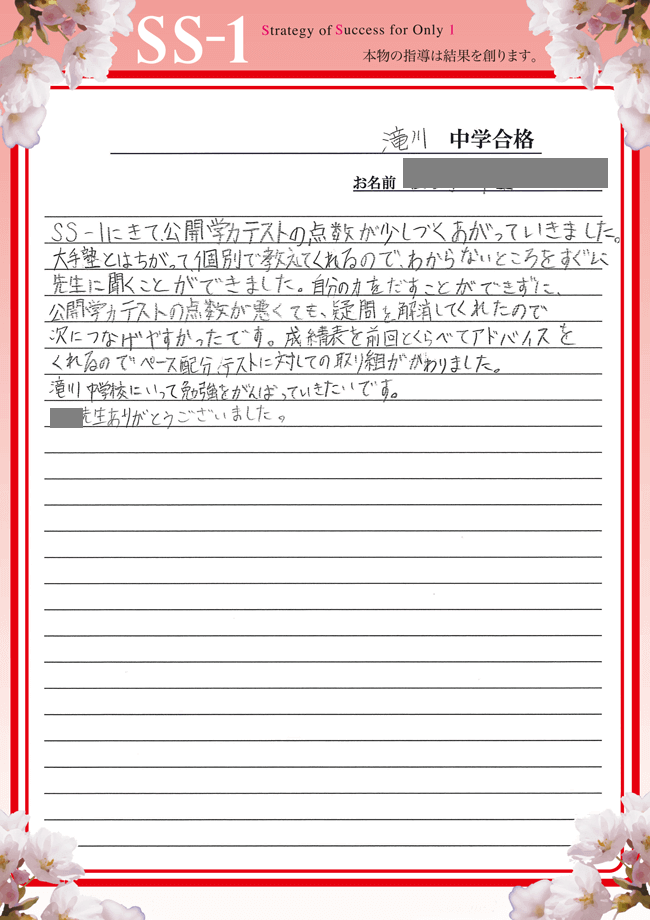 SS-1
Strategy of Success for Only 1
本物の指導は結果を創ります。
滝川 中学合格
お名前
SS-1にきて、公開学力テストの点数が少しづくあがっていきました。
大手塾とはちがって、個別で教えてくれるので、わからないところをすぐに
先生に聞くことができました。自分の力をだすことができずに、
公開学力テストの点数が悪くても、疑問を解消してくれたので
次につなげやすかったです。成績表を前回とくらべてアドバイスを
くれるのでペース配分、テストに対しての取り組がかわりました。
滝川中学校にいって勉強をがんばっていきたいです。
先生ありがとうございました。